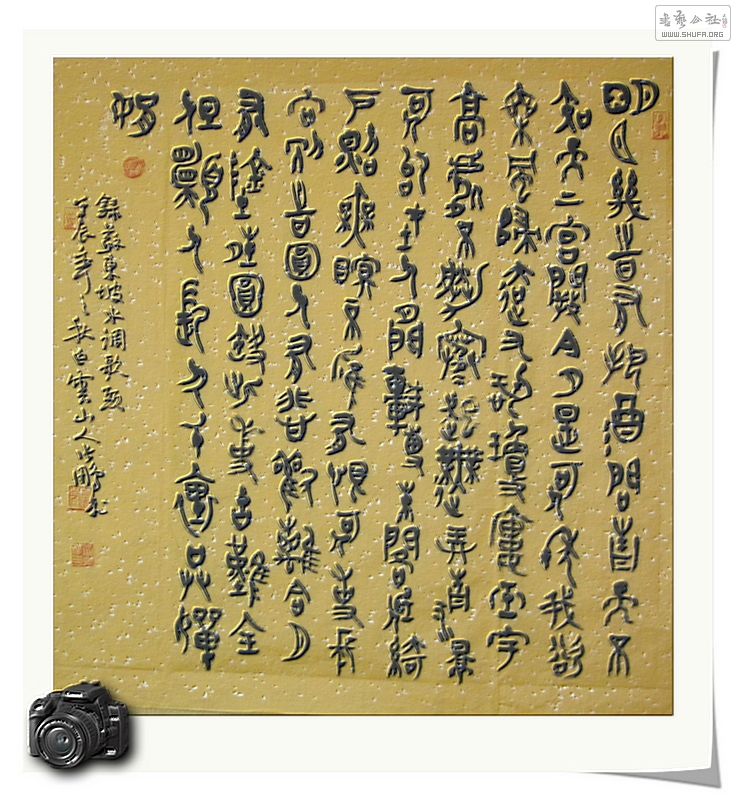 书艺公社
WWW.SHUFA.ORG
明月幾時有把酒問青天不
知天上宮闕今夕是何年我欲
乘風歸去又恐瓊樓玉宇
高處不勝寒起舞弄清影
何似在人間轉朱閣低綺
戶照無眠不應有恨何事長
向別時圓人有悲歡離合月
有陰晴圓缺此事古難全
但願人長久千里共嬋
娟
錄蘇東坡水調歌頭
壬辰年之秋白雲山人鵬書